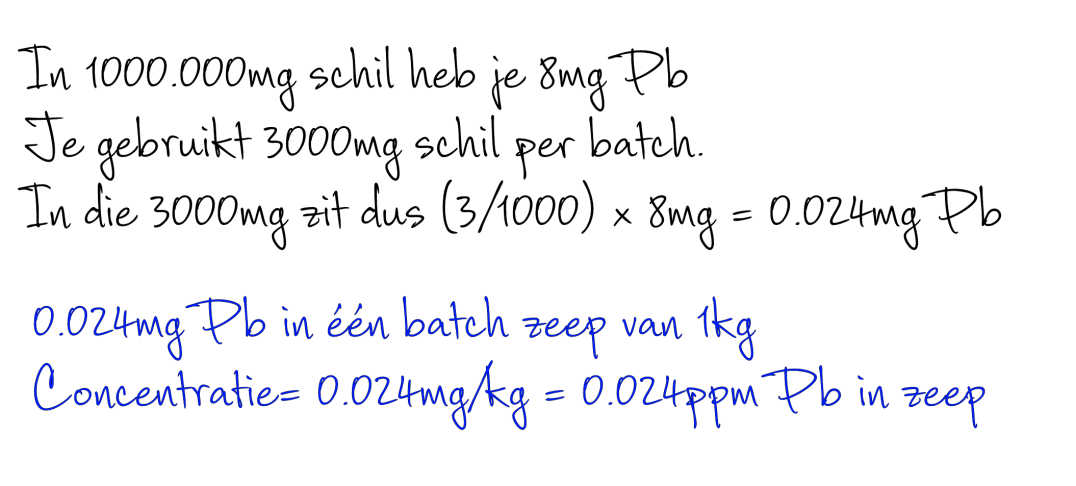 In 1000.000mg schil heb je 8mg Pb
Je gebruikt 3000mg schil per batch.
In die 3000mg zit dus (3/1000) x 8mg = 0.024mg Pb
0.024mg Pb in één batch zeep van 1kg
Concentratie= 0.024mg/kg = 0.024ppm Pb in zeep